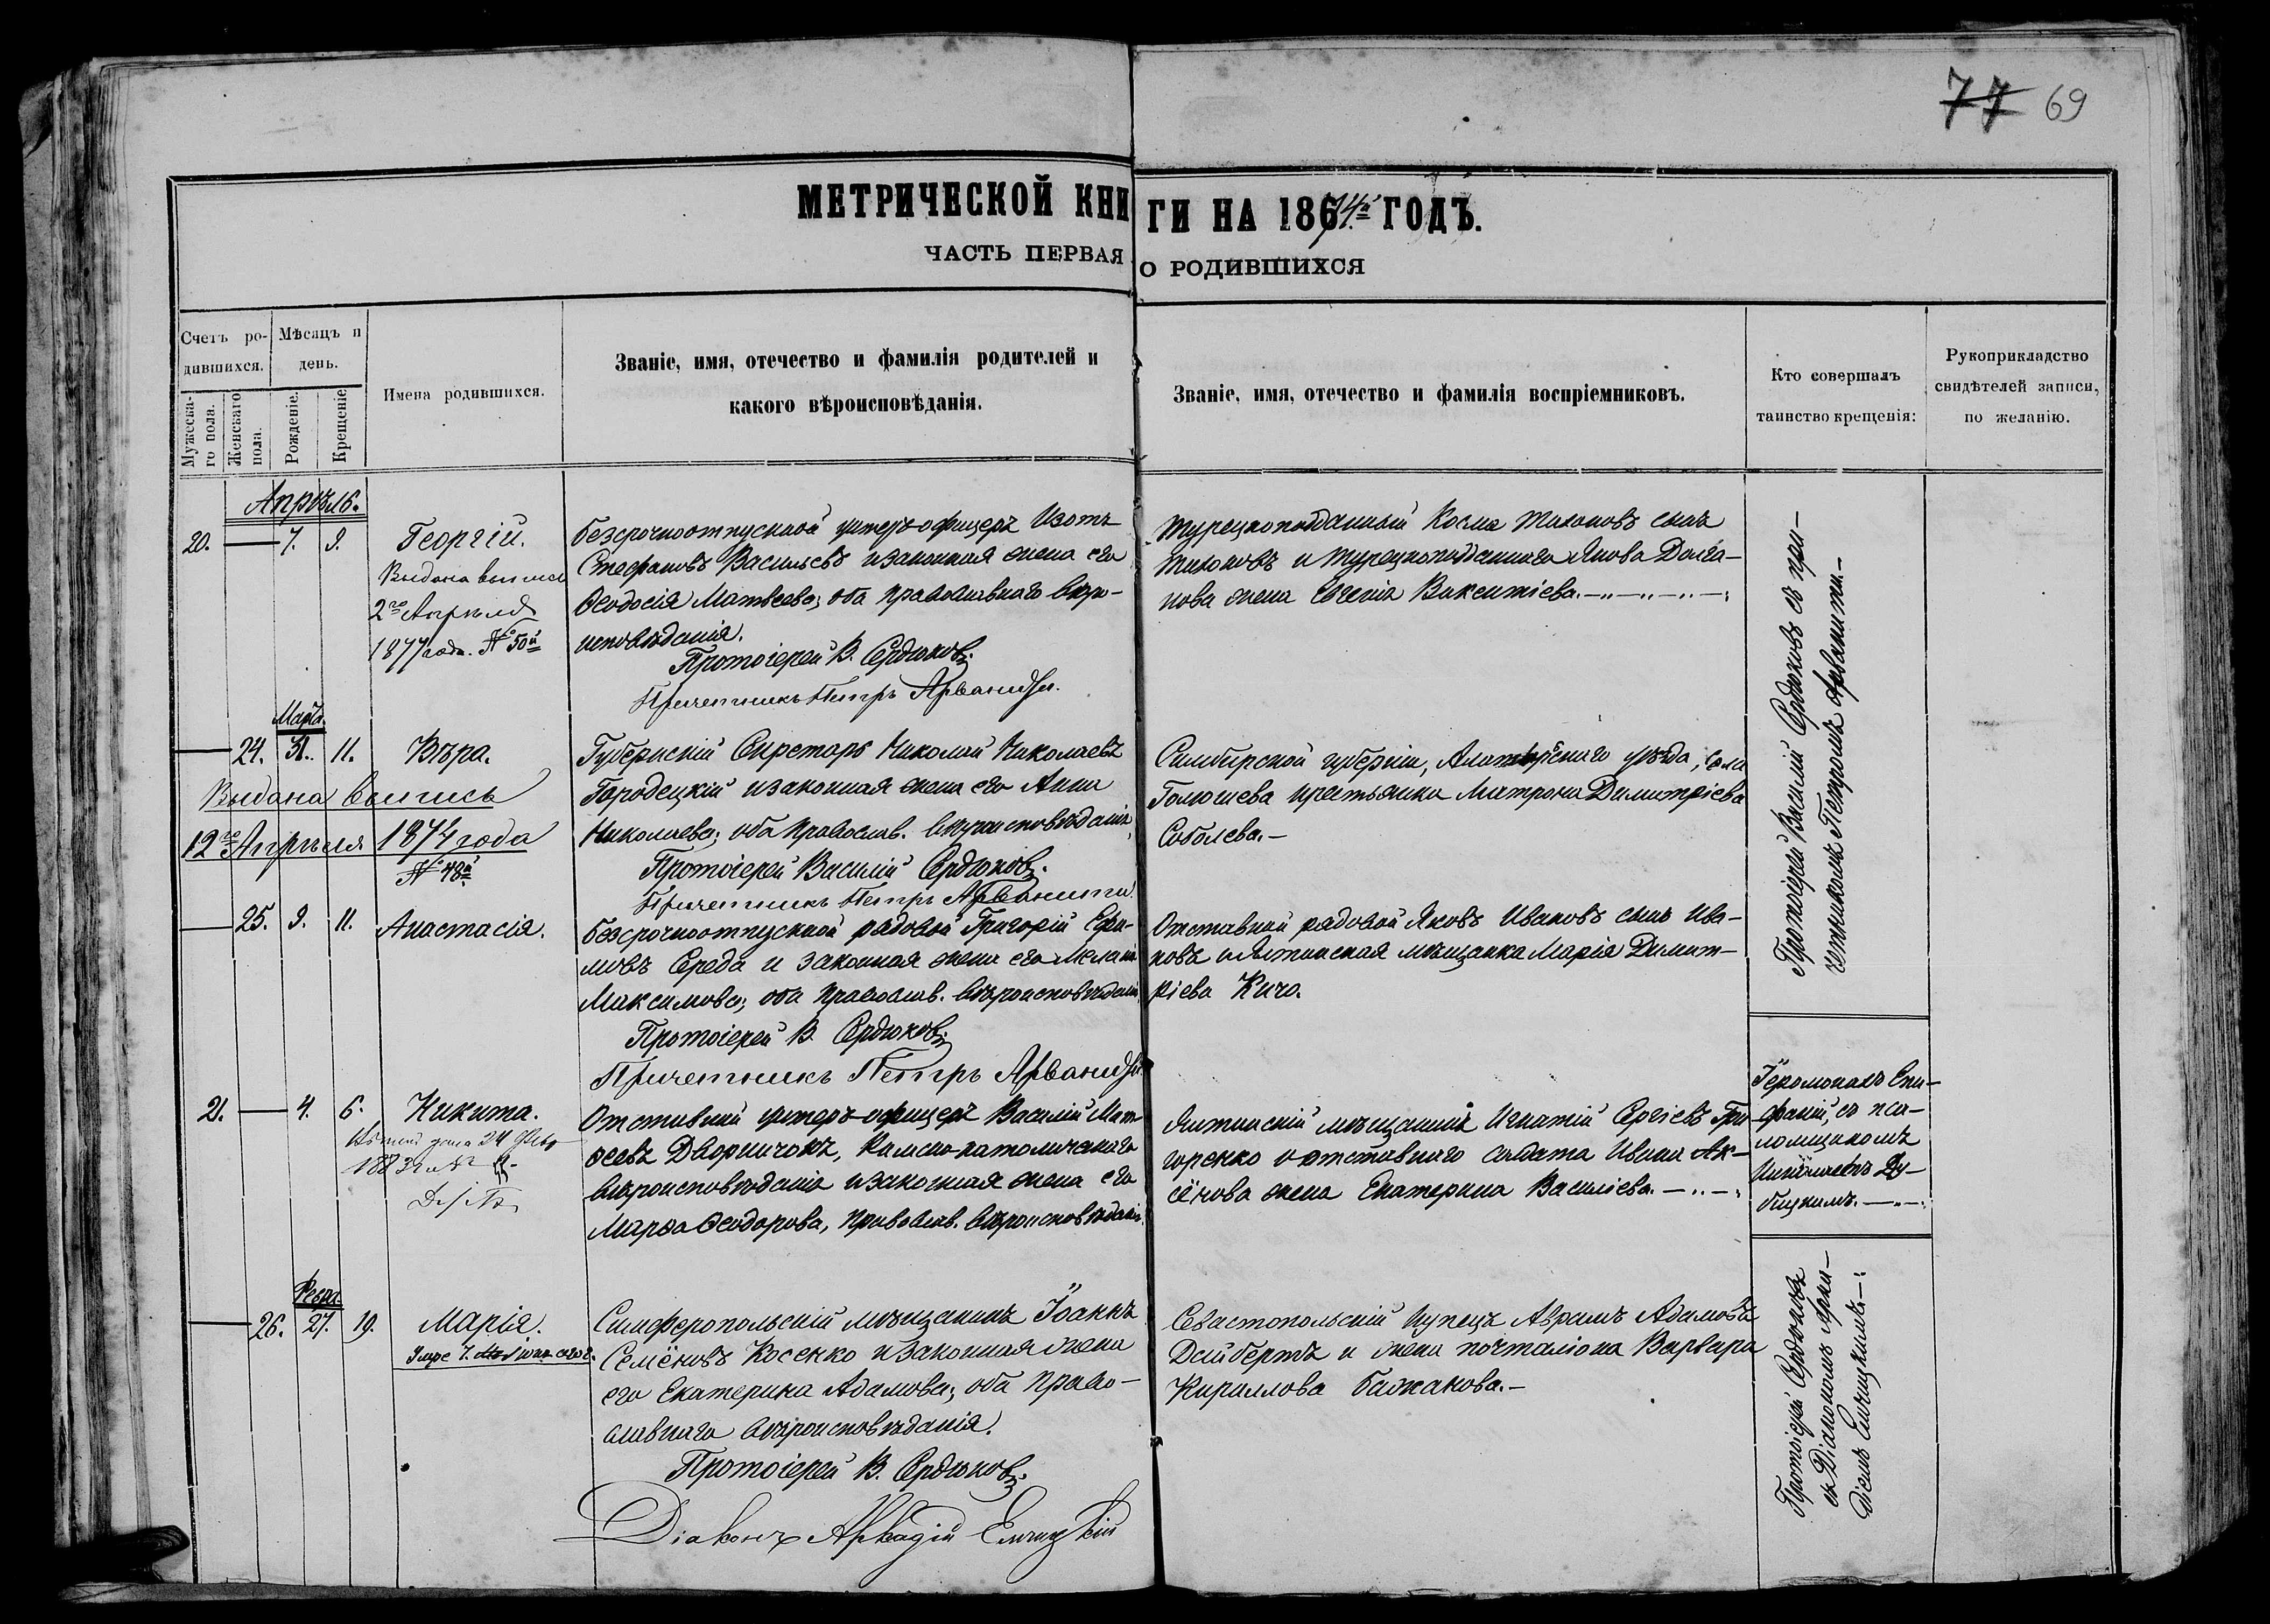 77 69
МЕТРИЧЕСКОЙ КНИГИ НА 1874й ГОДЪ.
ЧАСТЬ ПЕРВАЯ О РОДИВШИХСЯ
Счетъ ро-
дившихся.
Мѣсяцъ и
день.
Мужеска-
го пола.
Женскаго
пола.
Рожденіе.
Крещеніе.
Имена родившихся.
Званіе, имя, отчество и фамилія родителей и
какого вѣроисповѣданія.
Званіе, имя, отчество и фамилія воспріемниковъ.
Кто совершалъ
таинство крещенія:
Рукоприкладство
свидѣтелей записи,
по желанію.
Апрѣль.
20. — 7. 9.
Георгій.
Выдана выпись
2го Апрѣля
1877 года. № 50й
Безсрочноотпускной унтеръ-офицеръ Изотъ
Стефановъ Васильевъ и законная жена его
Ѳеодосія Матвеева; оба православнаго вѣро-
исповѣданія.
Протоіерей В. Сердюковъ.
Причетникъ Петръ Арваниди.
Турецкоподданный Косма Тихоновъ сынъ
Тихоновъ и турецкоподданнаго Якова Долга-
нова жена Евгенія Викентіева.
Протоіерей Василій Сердюковъ съ при-
четникомъ Петромъ Арванити.—
Марта.
— 24. 31. 11.
Вѣра.
Выдана выпись
12го Апрѣля 1874 года
№ 48й
Губернскій Секретарь Николай Николаевъ
Городецкій и законная жена его Анна
Николаева; оба православ. вѣроисповѣданія.
Протоіерей Василій Сердюковъ.
Причетникъ Петръ Арванити.
Симбирской губерніи, Алатырскаго уѣзда, села
крестьянка Матрона Димитріева
Соболева.—
— 25. 9. 11.
Анастасія.
Безсрочноотпускной рядовой Григорій Ефи-
мовъ Середа и законная жена его Меланія
Максимова; оба православ. вѣроисповѣданія.
Протоіерей В. Сердюковъ.
Причетникъ Петръ Арваниди
Отставной рядовой Яковъ Ивановъ сынъ Ива-
новъ и Ялтинская мѣщанка Марія Димит-
ріева Кичо.
21. — 4. 6.
Никита.
24
1883
Отставной унтеръ-офицеръ Василій Мат-
ѳеевъ Дворничокъ, Римско-католическаго
вѣроисповѣданія и законная жена его
Марѳа Ѳеодорова, православ. вѣроисповѣданія.
Ялтинскій мѣщанинъ Игнатій Сергіевъ Гри-
горенко и отставнаго солдата Ивана Ак-
сёнова жена Екатерина Василіева.
Іеромонахъ Епи-
фаній, съ пса-
ломщикомъ
Февра.
— 26. 27. 19.
Марія.
Умре 7. іюня сего г.
Симферопольскій мѣщанинъ Іоаннъ
Семёновъ Косенко и законная жена
его Екатерина Адамова; оба право-
славнаго вѣроисповѣданія.
Протоіерей В. Сердюковъ.
Діаконъ Аркадій Енчицкій
Севастопольскій купецъ Аврамъ Адамовъ
Дейбертъ и жена почталіона Варвара
Кириллова Бажанова.—
Протоіерей Сердюковъ
съ Діакономъ Арка-
діемъ Енчицкимъ